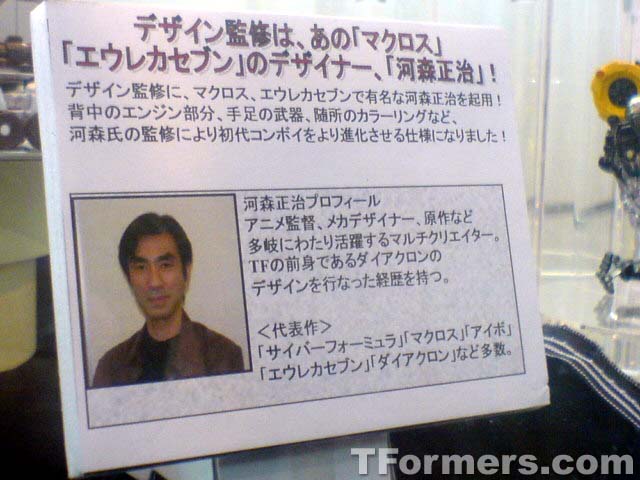 デザイン監修は、あの「マクロス」
「エウレカセブン」のデザイナー、「河森正治」！
デザイン監修に、マクロス、エウレカセブンで有名な河森正治を起用！
背中のエンジン部分、手足の武器、随所のカラーリングなど、
河森氏の監修により初代コンボイをより進化させる仕様になりました！
河森正治プロフィール
アニメ監督、メカデザイナー、原作など
多岐にわたり活躍するマルチクリエイター。
TFの前身であるダイアクロンの
デザインを行なった経歴を持つ。
＜代表作＞
「サイバーフォーミュラ」「マクロス」「アイボ」
「エウレカセブン」「ダイアクロン」など多数。
TFormers.com